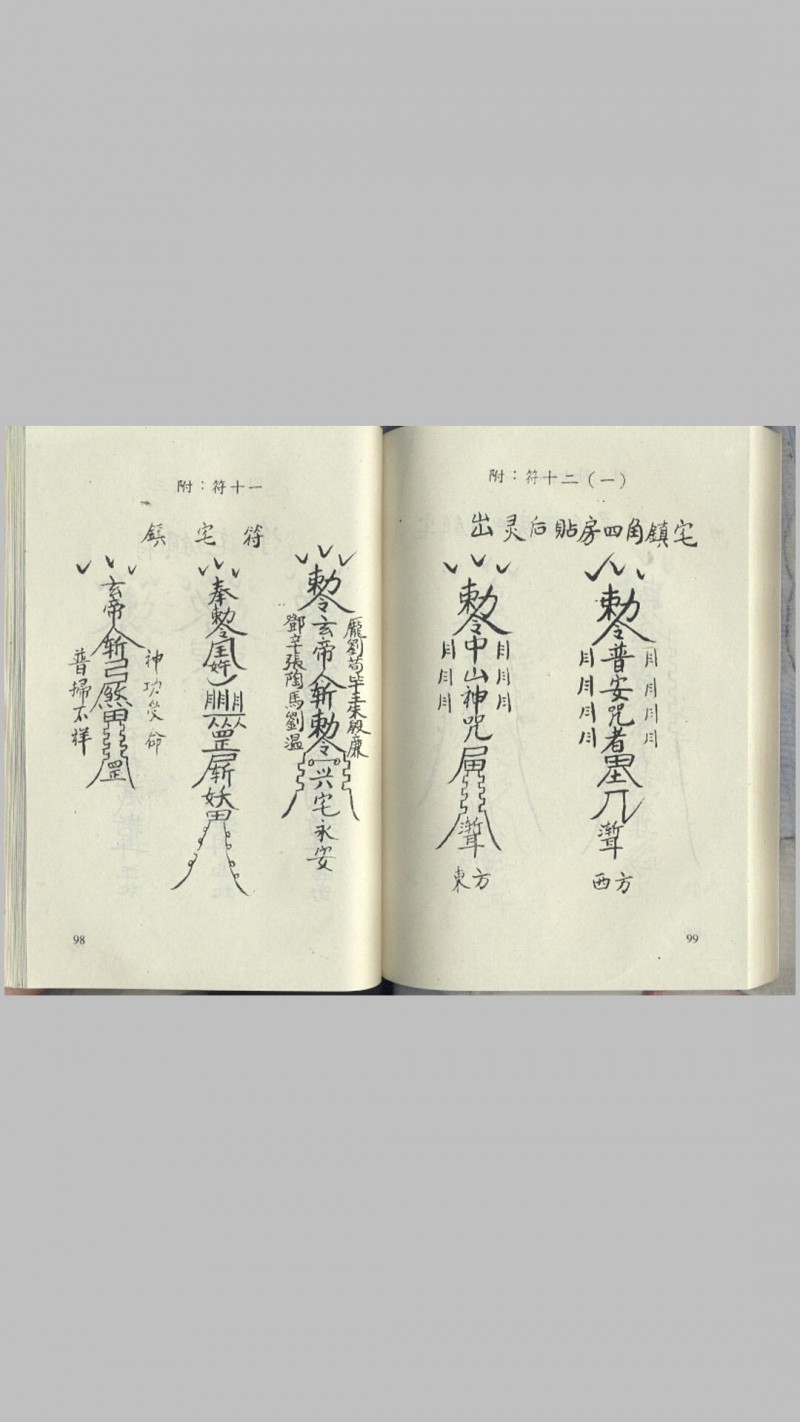 附：符十一
鎮宅符
勅令玄帝斬勅令兴宅永安
龐劉苟畢
鄧辛張陶馬劉温
奉勅令
斬妖
玄帝斬
神功受命
普掃不祥
98
附：符十二（一）
出灵后貼房四角鎮宅
勅令中山神咒
月月月
月月月
東方
勅令普安咒者
月月月月
月月月月
西方
99